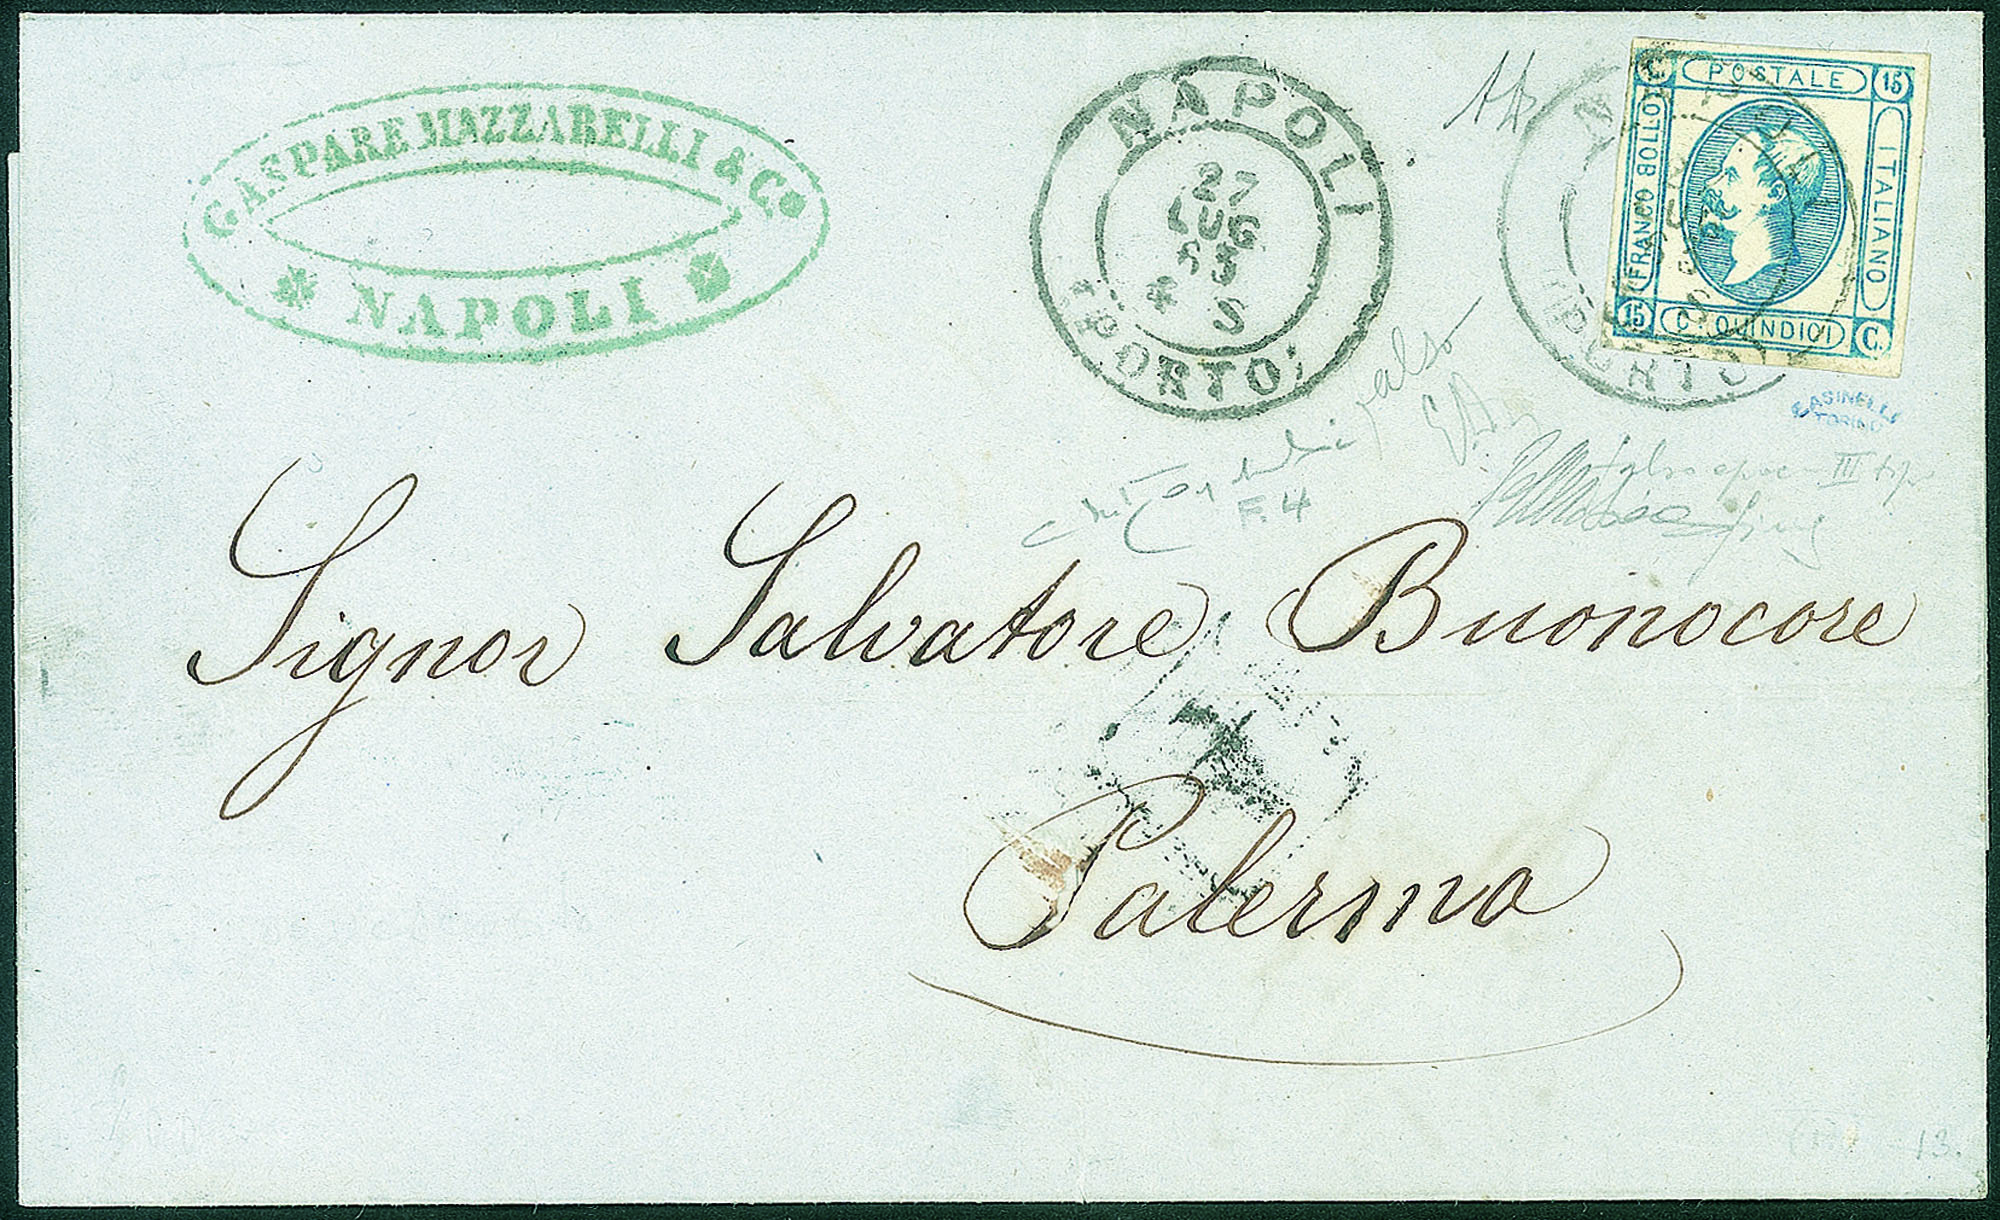 GASPARE MAZZARELLI & Co
NAPOLI
NAPOLI
27
LUG
63
4 S
(PORTO)
C. POSTALE 15
FRANCO BOLLO
ITALIANO
15 Cⁱ QUINDICI C.
(PORTO)
ASINELLI
TORINO
falso
F. 4
falso epoca III tipo
Signor Salvatore Buonocore
Palermo
13.